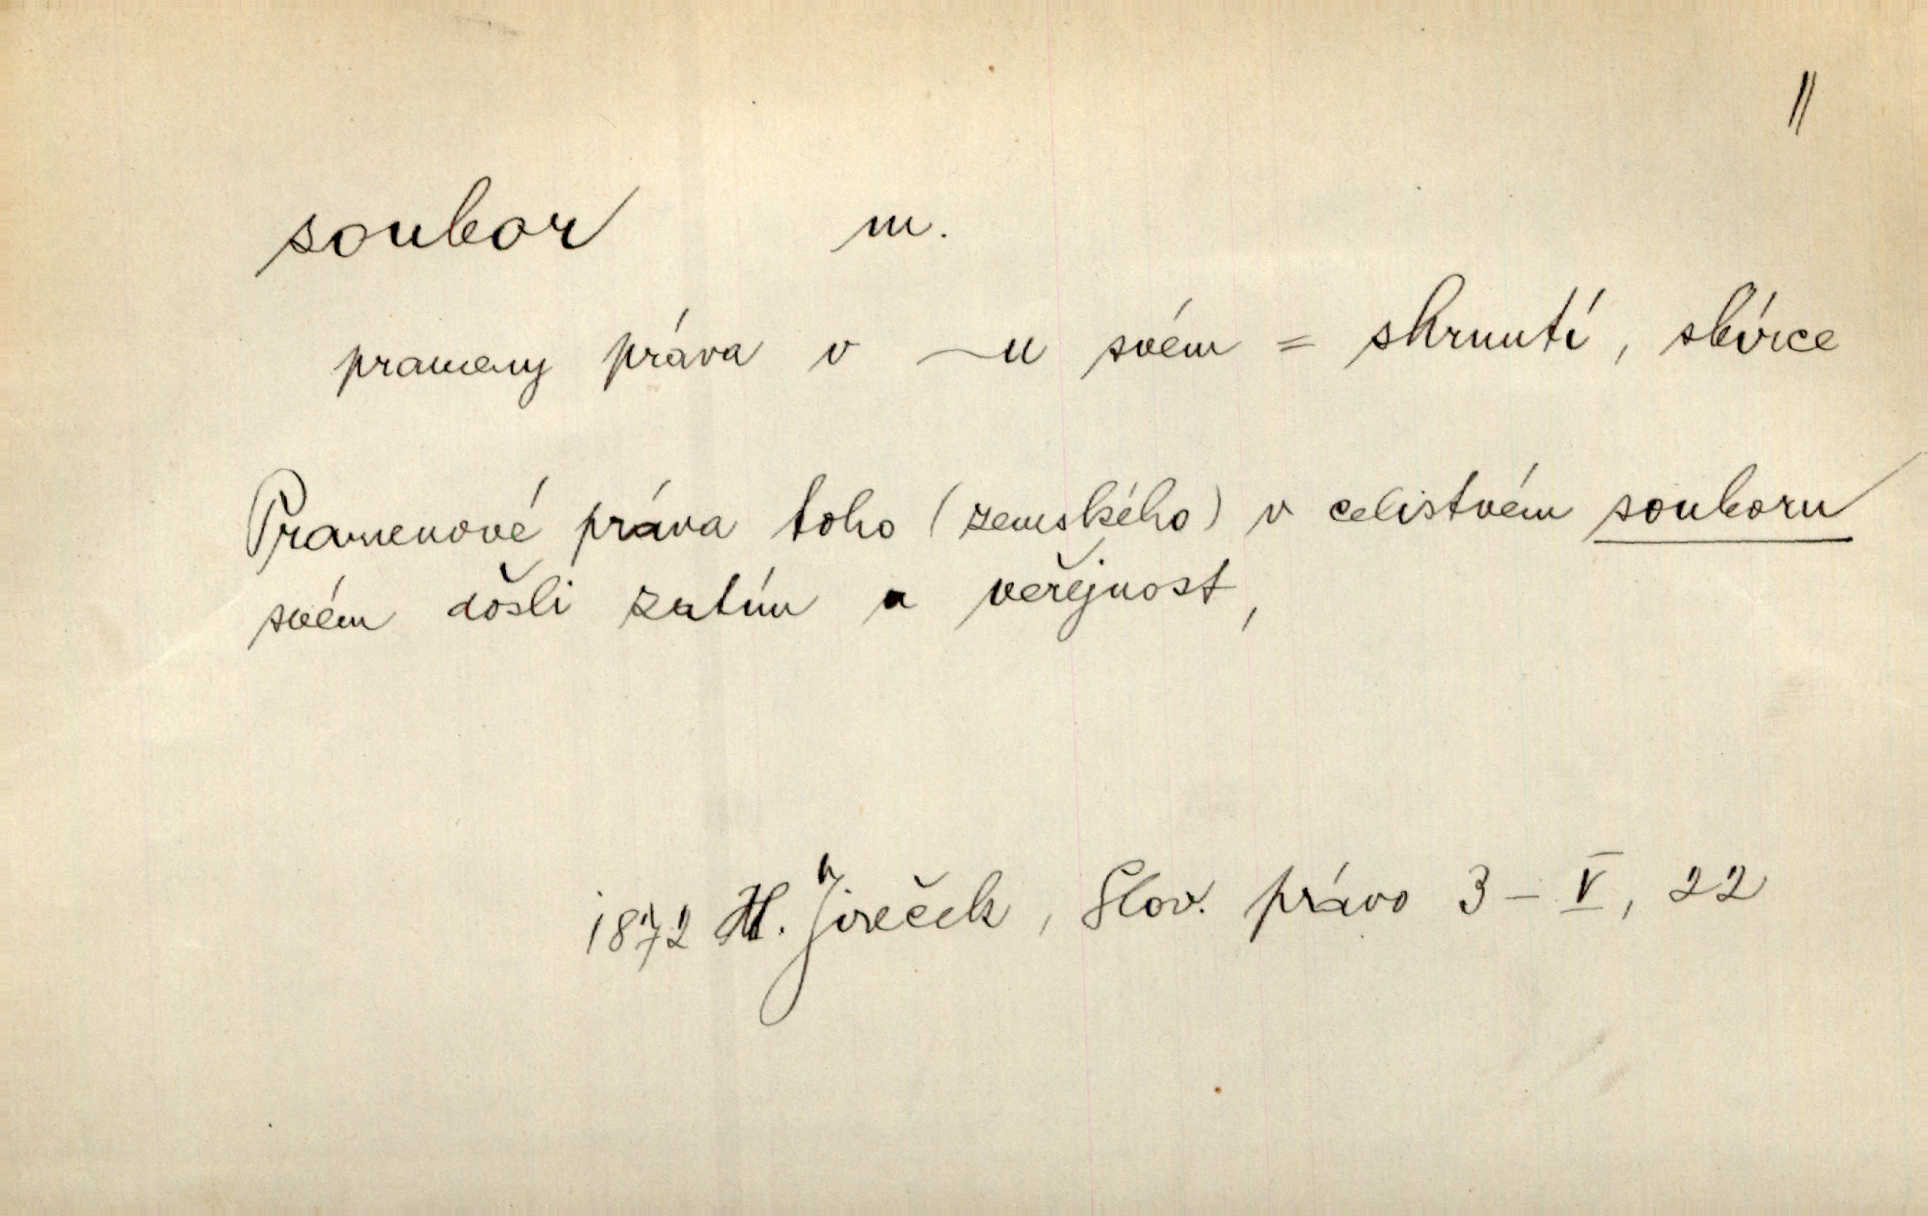 ||
soubor m.
prameny práva v ~u svém = shrnutí, sbírce
Pramenové práva toho (zemského) v celistvém souboru
svém došli zatím a veřejnost,
1872 H. Jireček, Slov. právo 3 - V, 22